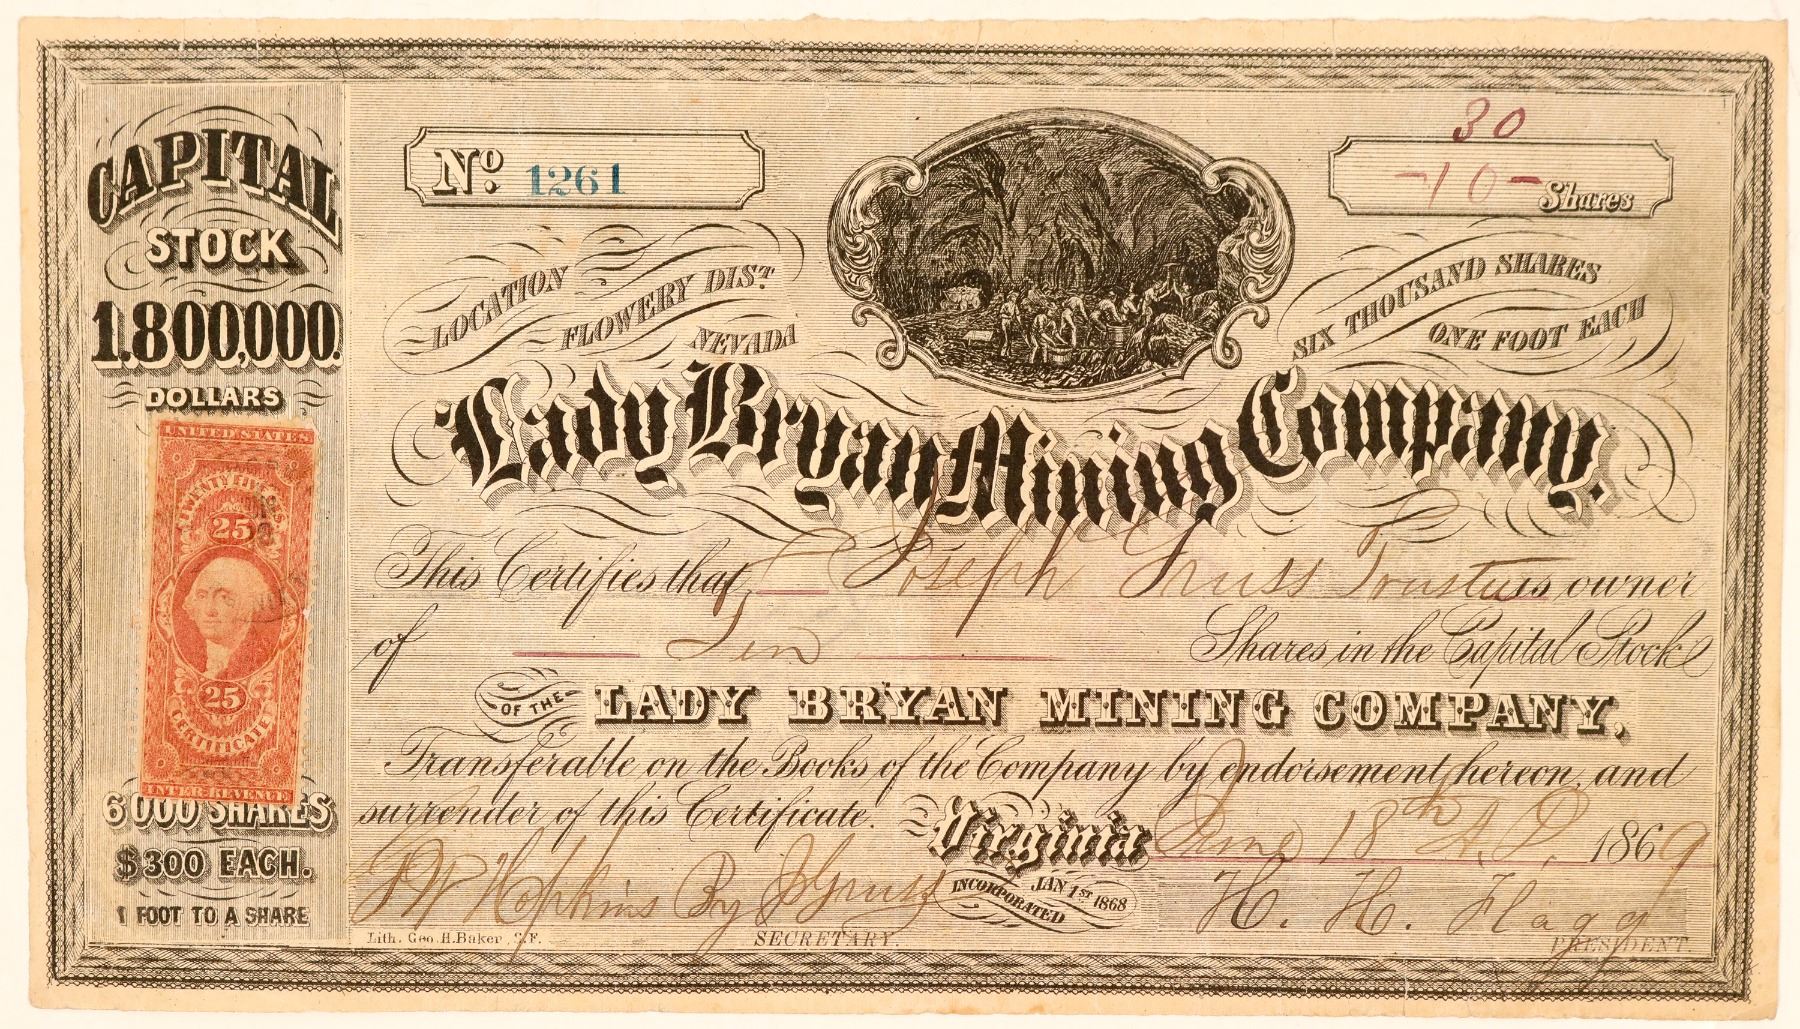 CAPITAL
STOCK
1.800,000.
DOLLARS
UNITED STATES
TWENTY FIVE CTS
25
25
CERTIFICATE
INTER. REVENUE
6000 SHARES
$300 EACH.
1 FOOT TO A SHARE
No. 1261
30
-10- Shares
LOCATION
FLOWERY DIST.
NEVADA
SIX THOUSAND SHARES
ONE FOOT EACH
Lady Bryan Mining Company.
This Certifies that Joseph Gruss Trustee is owner
of Ten Shares in the Capital Stock
OF THE LADY BRYAN MINING COMPANY,
Transferable on the Books of the Company by endorsement hereon, and
surrender of this Certificate. Virginia June 18th A.D. 1869
INCORPORATED JAN 1ST 1868
F W Hopkins By J Gruss
H. H. Flagg
Lith. Geo. H. Baker, S.F.
SECRETARY.
PRESIDENT.